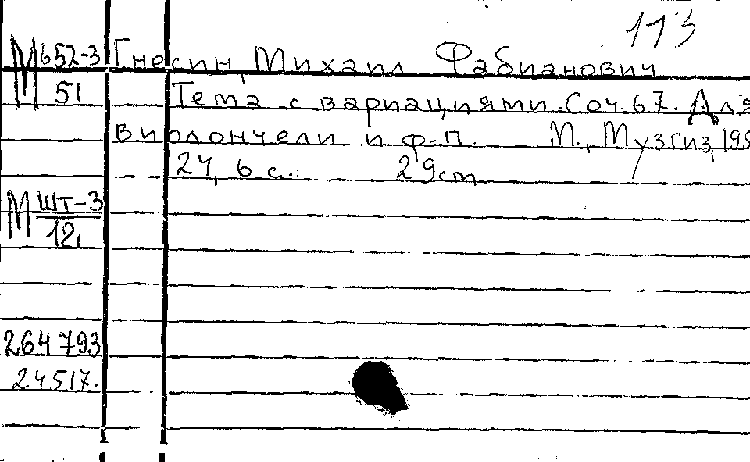 113
М 652-3 Гнесин, Михаил Фабианович
51 Тема с вариациями. Соч. 67. Для
виолончели и ф-п. М., Музгиз, 195
24, 6 с. 29 cm
М шт-3
12,
264793
24517.